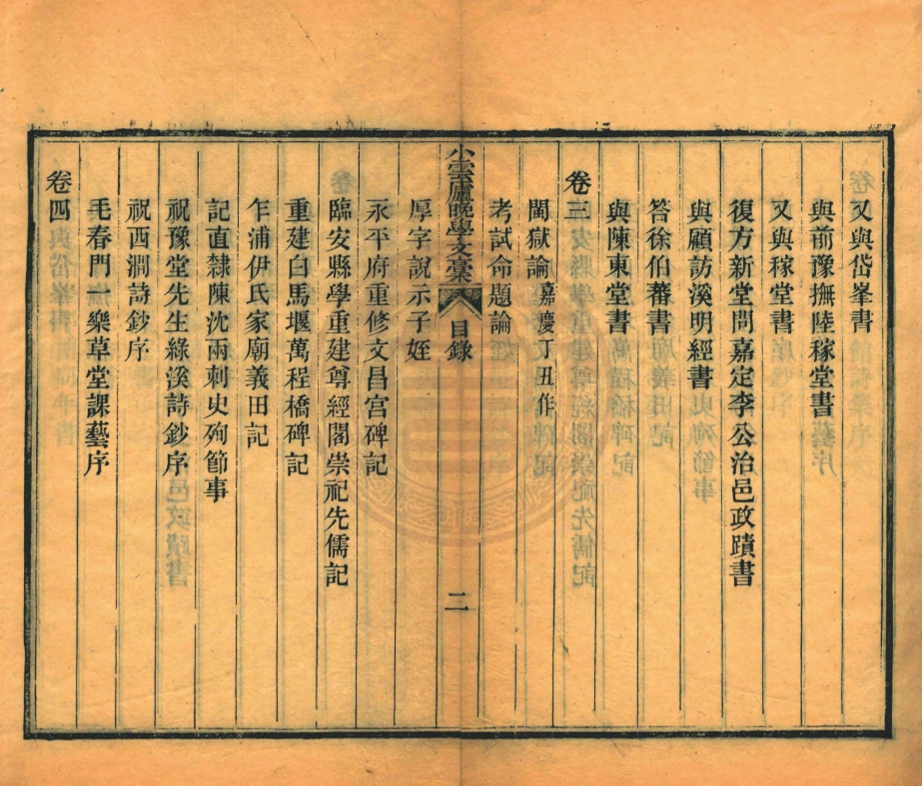 又與岱峯書
與前豫撫陸稼堂書
又與稼堂書
復方新堂問嘉定李公治邑政蹟書
與顧訪溪明經書
答徐伯蕃書
與陳東堂書
卷三
閩獄論嘉慶丁丑作
考試命題論
小雲廬晚學文稾
目錄
二
厚字說示子姪
永平府重修文昌宮碑記
臨安縣學重建尊經閣崇祀先儒記
重建白馬堰萬程橋碑記
乍浦伊氏家廟義田記
記直隸陳沈兩刺史殉節事
祝豫堂先生綠溪詩鈔序
祝西澗詩鈔序
毛春門一樂草堂課藝序
卷四